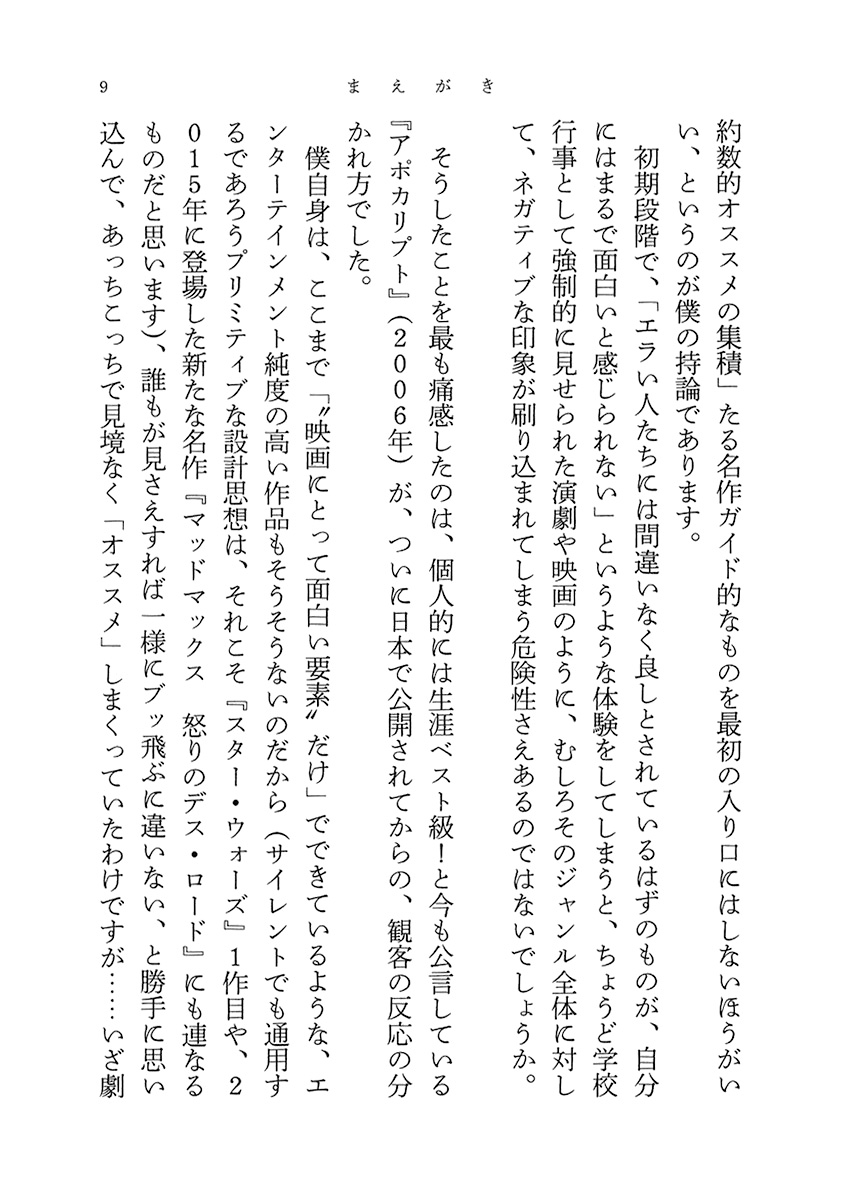 9
まえがき
約数的オススメの集積」たる名作ガイド的なものを最初の入り口にはしないほうがい
い、というのが僕の持論であります。
初期段階で、「エラい人たちには間違いなく良しとされているはずのものが、自分
にはまるで面白いと感じられない」というような体験をしてしまうと、ちょうど学校
行事として強制的に見せられた演劇や映画のように、むしろそのジャンル全体に対し
て、ネガティブな印象が刷り込まれてしまう危険性さえあるのではないでしょうか。
そうしたことを最も痛感したのは、個人的には生涯ベスト級！と今も公言している
『アポカリプト』（2006年）が、ついに日本で公開されてからの、観客の反応の分
かれ方でした。
僕自身は、ここまで「〝映画にとって面白い要素〟だけ」でできているような、エ
ンターテインメント純度の高い作品もそうそうないのだから（サイレントでも通用す
るであろうプリミティブな設計思想は、それこそ『スター・ウォーズ』1作目や、2
015年に登場した新たな名作『マッドマックス　怒りのデス・ロード』にも連なる
ものだと思います）、誰もが見さえすれば一様にブッ飛ぶに違いない、と勝手に思い
込んで、あっちこっちで見境なく「オススメ」しまくっていたわけですが……いざ劇